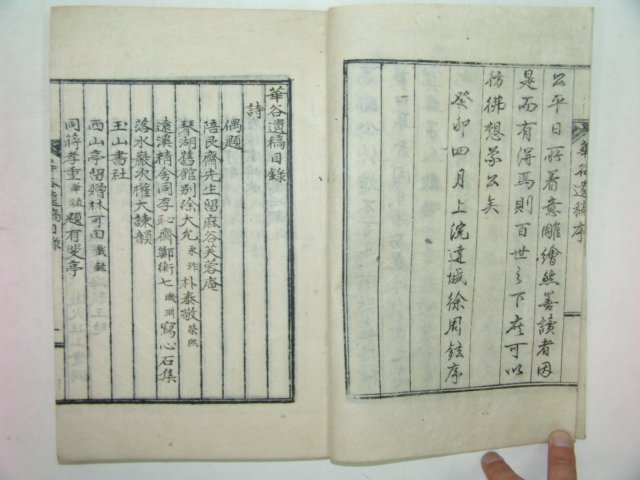 公平日所着意雕繪然善讀者因
是而有得焉則百世之下庶可以
彷彿想象公矣
癸卯四月上浣達城徐周鉉序
華谷遺稿序
華谷遺稿目錄
詩
偶題
陪艮齋先生留麻谷芙蓉庵
琴湖舊館別徐大允 朴泰敬
遠溪精舍同李恥齋鄭衡七 寫心石集
落水巖次權大諫韻
玉山書社
西山亭留贈林可田
同蔣孝重 題有斐亭
華谷遺稿目錄
一